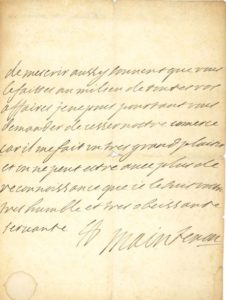 de mescrir aussy souuent que vous
le faittes au milieu de touttes vos
affaires je ne puis pourtant vous
demander de cesser nostre comerce
car il me fait un tres grand plaisir
et on ne peut estre auec plus de
reconnoissance que ie le suis vostre
tres humble et tres obeissante
seruante
Maintenon